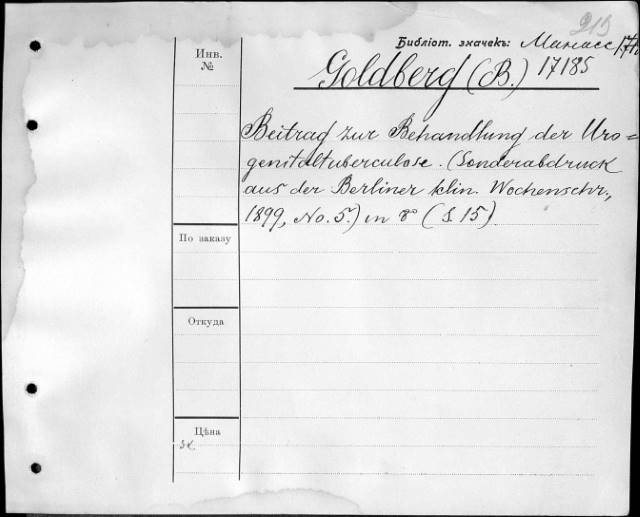 219
Библіот. значекъ: Манасс
Инв. №
Goldberg (B.) 17185
Beitrag zur Behandlung der Uro=
genitaltuberculose. (Sonderabdruck
aus der Berliner klin. Wochenschr.,
1899, No. 5.) in 8° (S 15)
По заказу
Откуда
Цѣна